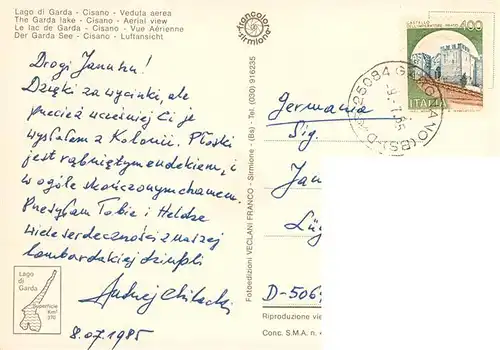 Lago di Garda - Cisano - Veduta aerea
The Garda lake - Cisano - Aerial view
Le lac de Garda - Cisano - Vue Aérienne
Der Garda See - Cisano - Luftansicht
francolor
sirmione
Drogi Januszu!
Dzięki za wycinki, ale
przecież wcześniej Ci je
wysłałem z Kolonii. Płoski
jest rąbniętym endekiem, i
w ogóle skończonym chamem.
Przesyłam Tobie i Heldze
wiele serdeczności z naszej
lombardzkiej dziupli
Andrzej
8.07.1985
Lago
di
Garda
Superficie
Km²
370
Fotoedizioni VECLANI FRANCO - Sirmione - (Bs) - Tel. (030) 916235
CASTELLO
DELL'IMPERATORE PRATO
400
ITALIA
25084 GARGNANO (BS)
Germania
Sig.
Jan
Lü
D-506
Riproduzione vie
Conc. S.M.A. n.